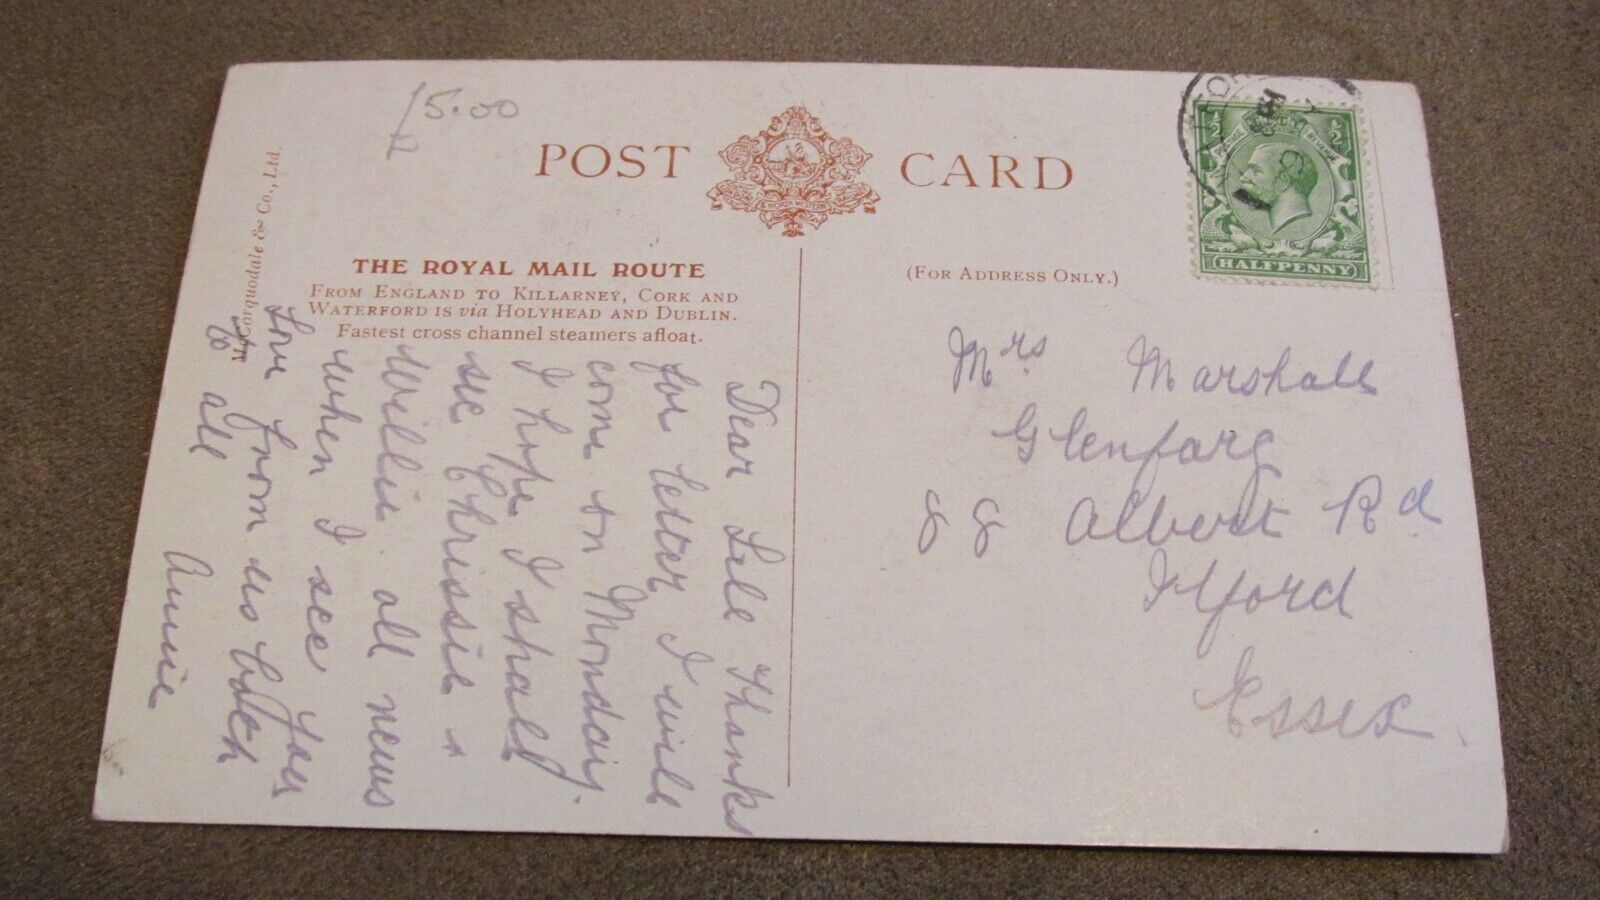 £5.00
POST CARD
LONDON & NORTH WESTERN
McCorquodale & Co., Ltd.
THE ROYAL MAIL ROUTE
FROM ENGLAND TO KILLARNEY, CORK AND
WATERFORD IS via HOLYHEAD AND DUBLIN.
Fastest cross channel steamers afloat.
(FOR ADDRESS ONLY.)
½ ½
POSTAGE REVENUE
HALFPENNY
Dear Lile Thanks
for letter I will
come on Monday.
I hope I shall
see Chrissie &
Willie all news
when I see you
Love from us both
to all
Annie
Mrs Marshall
Glenfarg
88 Albert Rd
Ilford
Essex.